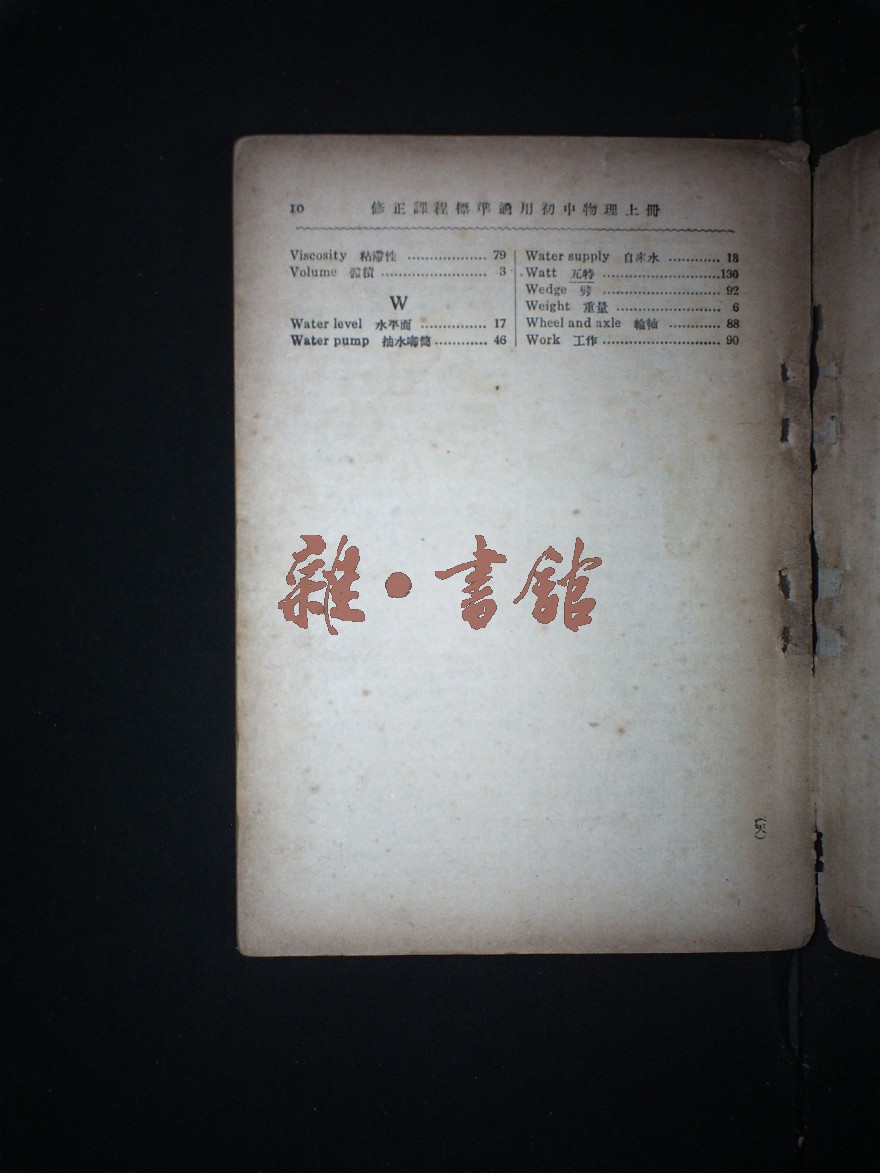 10 修正課程標準適用初中物理上冊
Viscosity 粘滯性 ……………… 79
Volume 體積 ……………………… 3
W
Water level 水平面 …………… 17
Water pump 抽水唧筒 ………… 46
Water supply 自來水 ………… 18
Watt 瓦特 ……………………… 130
Wedge 劈 ……………………… 92
Weight 重量 …………………… 6
Wheel and axle 輪軸 ………… 88
Work 工作 ……………………… 90
雜·書館